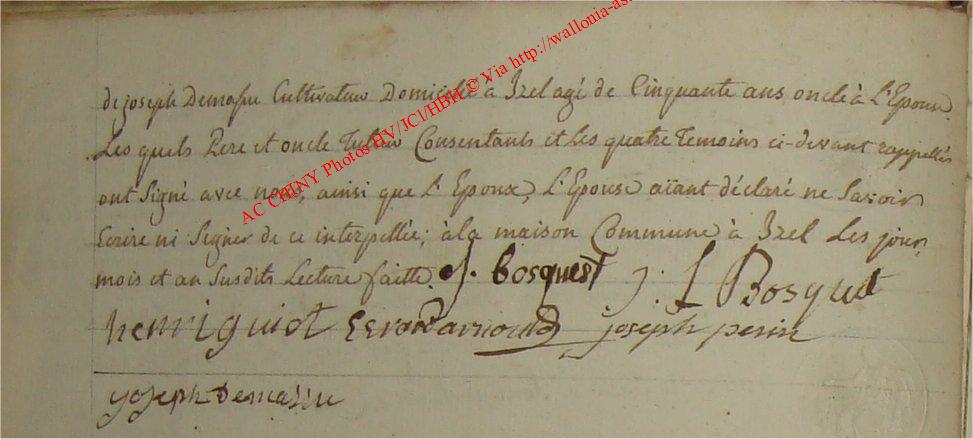 de joseph Demasu Cultivateur Domicilié à Izel agé de Cinquante ans oncle à L'Epouse.
Les quels Pere et oncle Tuteur Consentants et Les quatre Temoins ci-devant rappellés
ont Signé avec nous, ainsi que L'Epoux, L'Epouse aïant déclaré ne Savoir
Ecrire ni Signer de ce interpellée; à la maison Commune à Izel Les jour,
mois et an Susdits Lecture faitte. J. bosquest J. L Bosquet
henri guiot joseph perin
joseph Demasu
AC CHINY Photos HV/JCl/HBH © Via http://wallonia-as